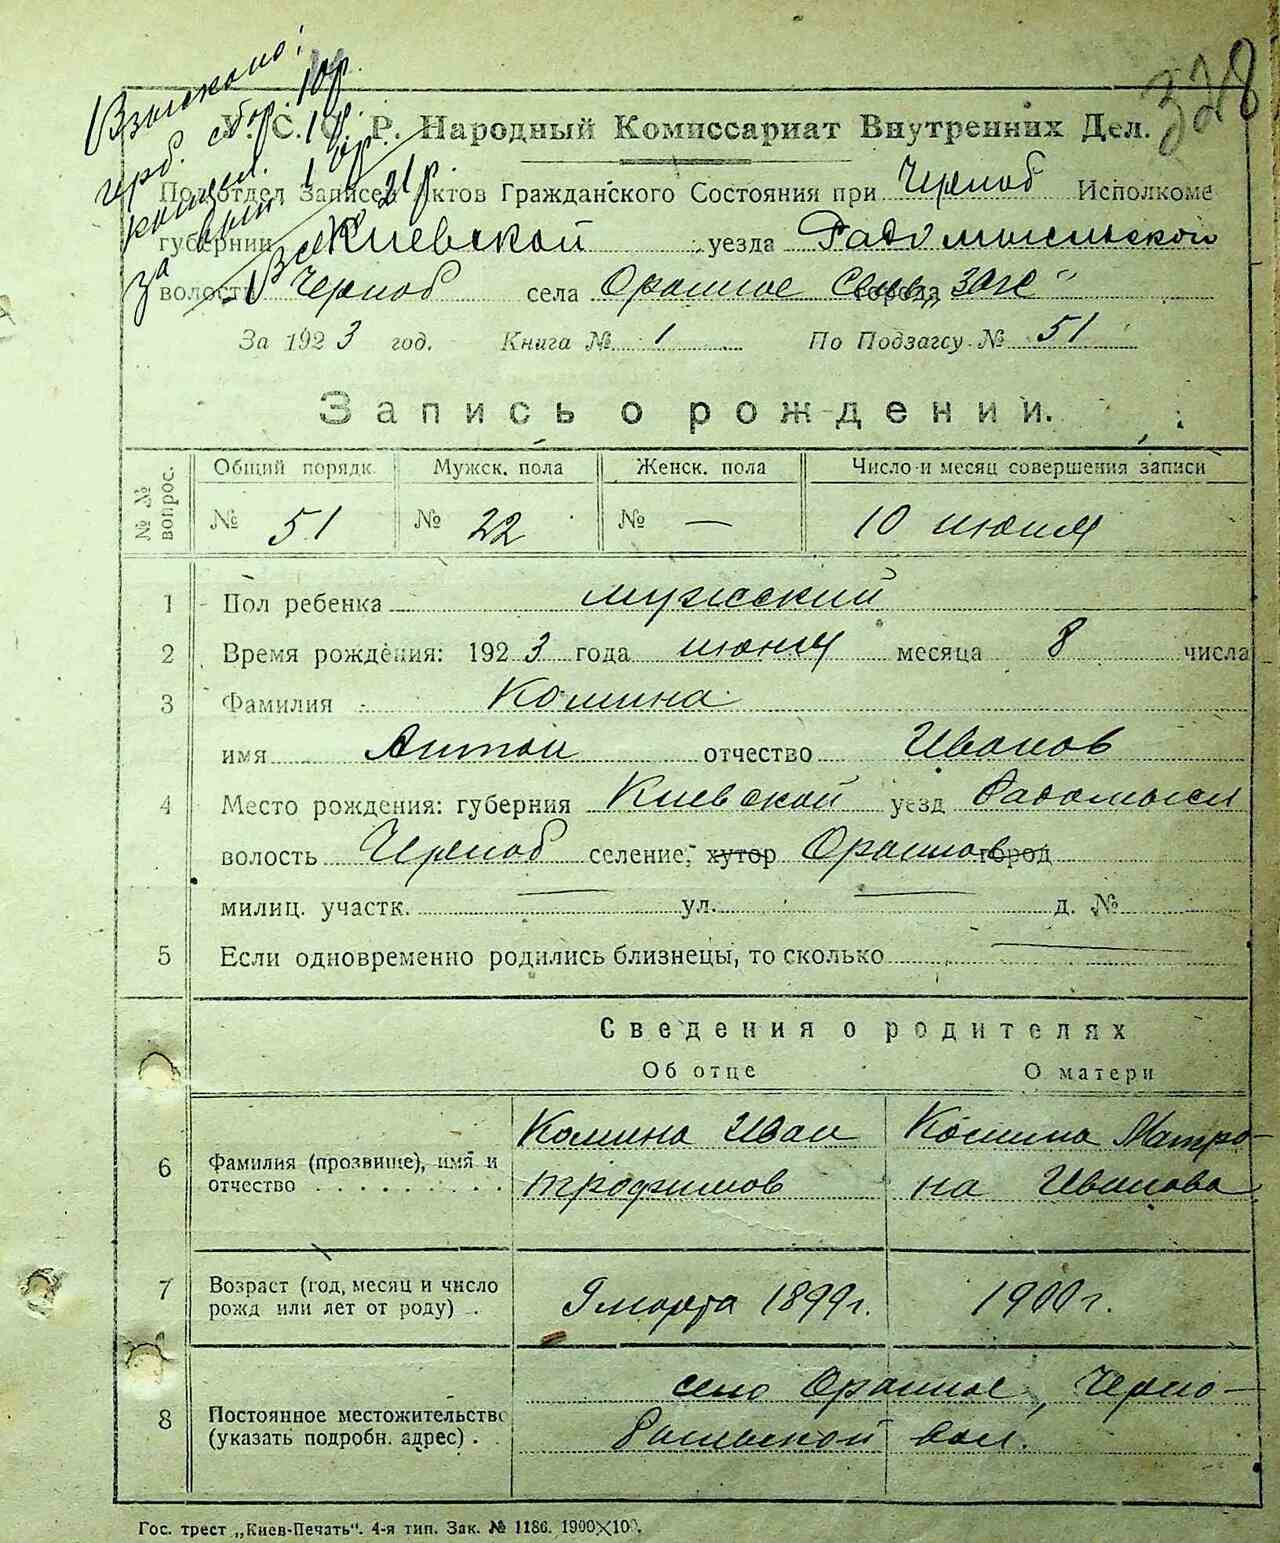 Взыскано:
герб. сбор. 10р.
328
У. С. С. Р. Народный Комиссариат Внутренних Дел.
Подотдел Записей Актов Гражданского Состояния при Черноб Исполкоме
губернии Киевской уезда Радомысльской
волости Черноб села Оранное города "ЗАГС"
За 1923 год. Книга № 1 По Подзагсу № 51
Запись о рождении.
№ № вопрос.
Общий порядк. Мужск. пола Женск. пола Число и месяц совершения записи
№ 51 № 22 № — 10 июня
1 Пол ребенка мужеский
2 Время рождения: 1923 года июня месяца 8 числа
3 Фамилия Комина
имя Антон отчество Иванов
4 Место рождения: губерния Киевской уезд Радомысл
волость Черноб селение, хутор Оранное город
милиц. участк. — ул. — д. №
5 Если одновременно родились близнецы, то сколько —
Сведения о родителях
Об отце О матери
6 Фамилия (прозвище), имя и отчество
Комина Иван Трофимов
Комина Матрона Иванова
7 Возраст (год, месяц и число рожд или лет от роду)
9 марта 1899 г. 1900 г.
8 Постоянное местожительство (указать подробн. адрес)
село Оранное, Черно-
быльской вол.
Гос. трест „Киев-Печать“. 4-я тип. Зак. № 1186. 1900×100.